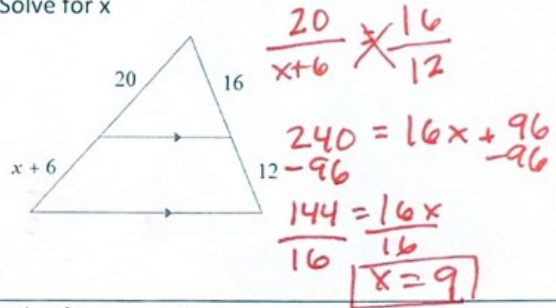 Solve for x
20
16
x + 6
12
20/x+6 = 16/12
240 = 16x + 96
-96 -96
144/16 = 16x/16
x = 9